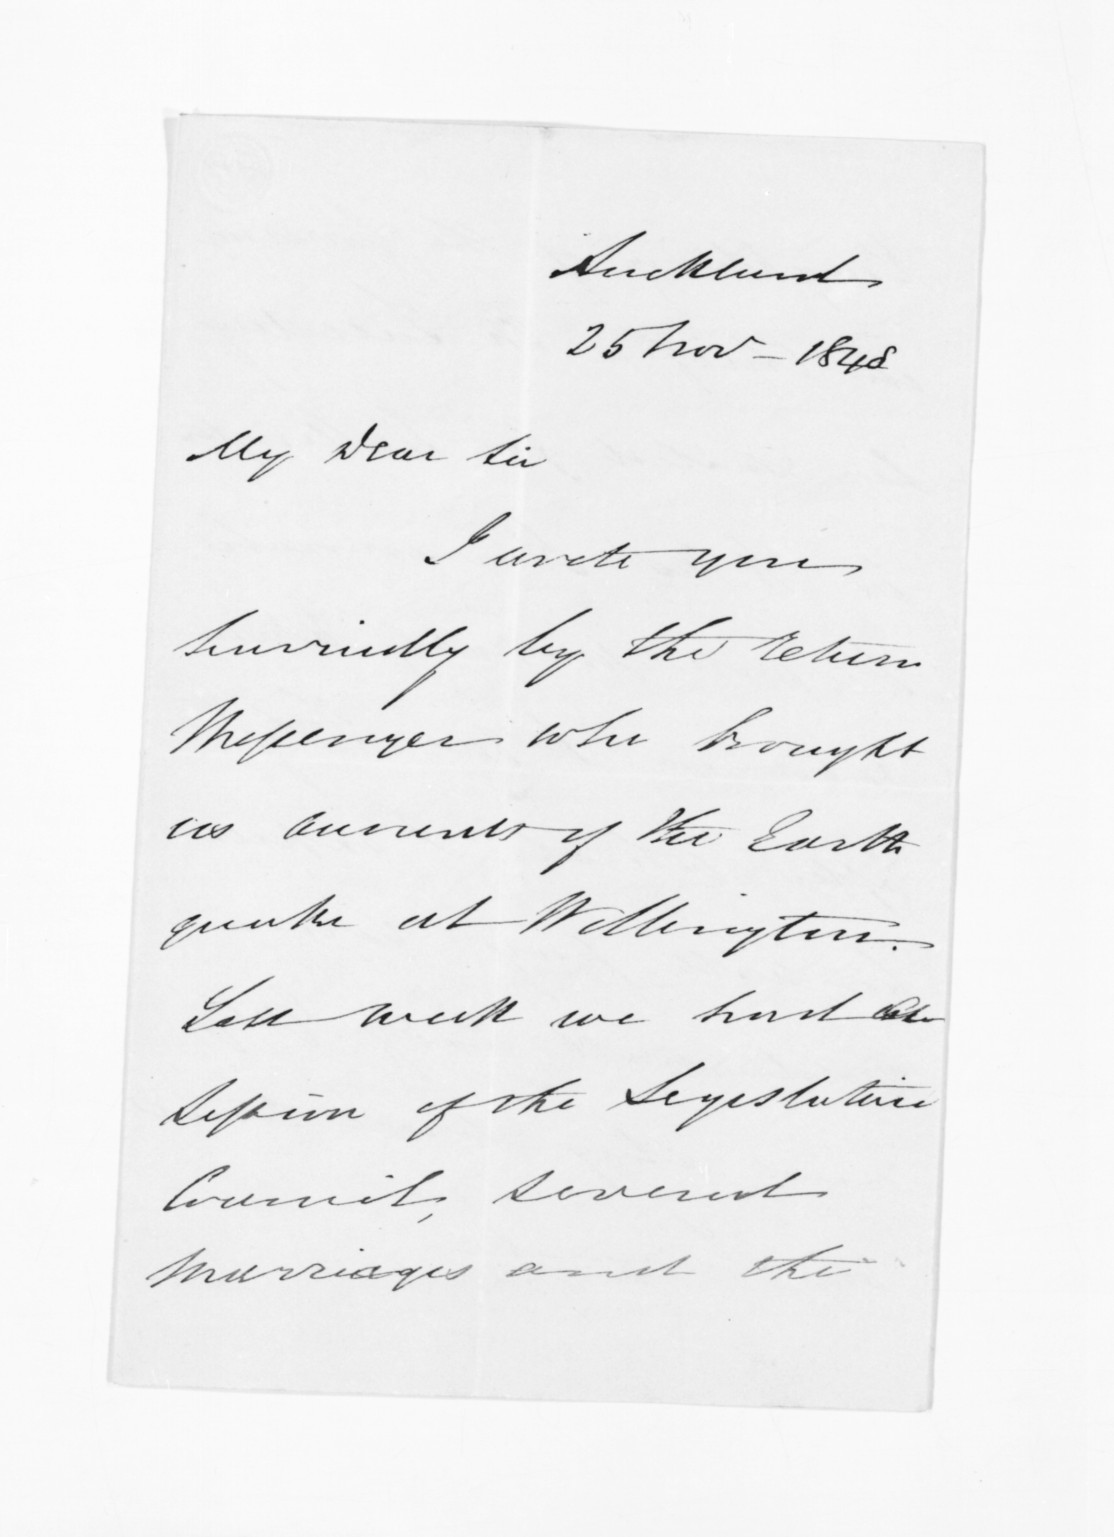 Auckland
25 Nov - 1848
My Dear Sir
I wrote you
hurriedly by the return
Messenger who brought
us accounts of the Earth
quake at Wellington.
Last week we had the
Session of the Legislative
Council, several
marriages and the